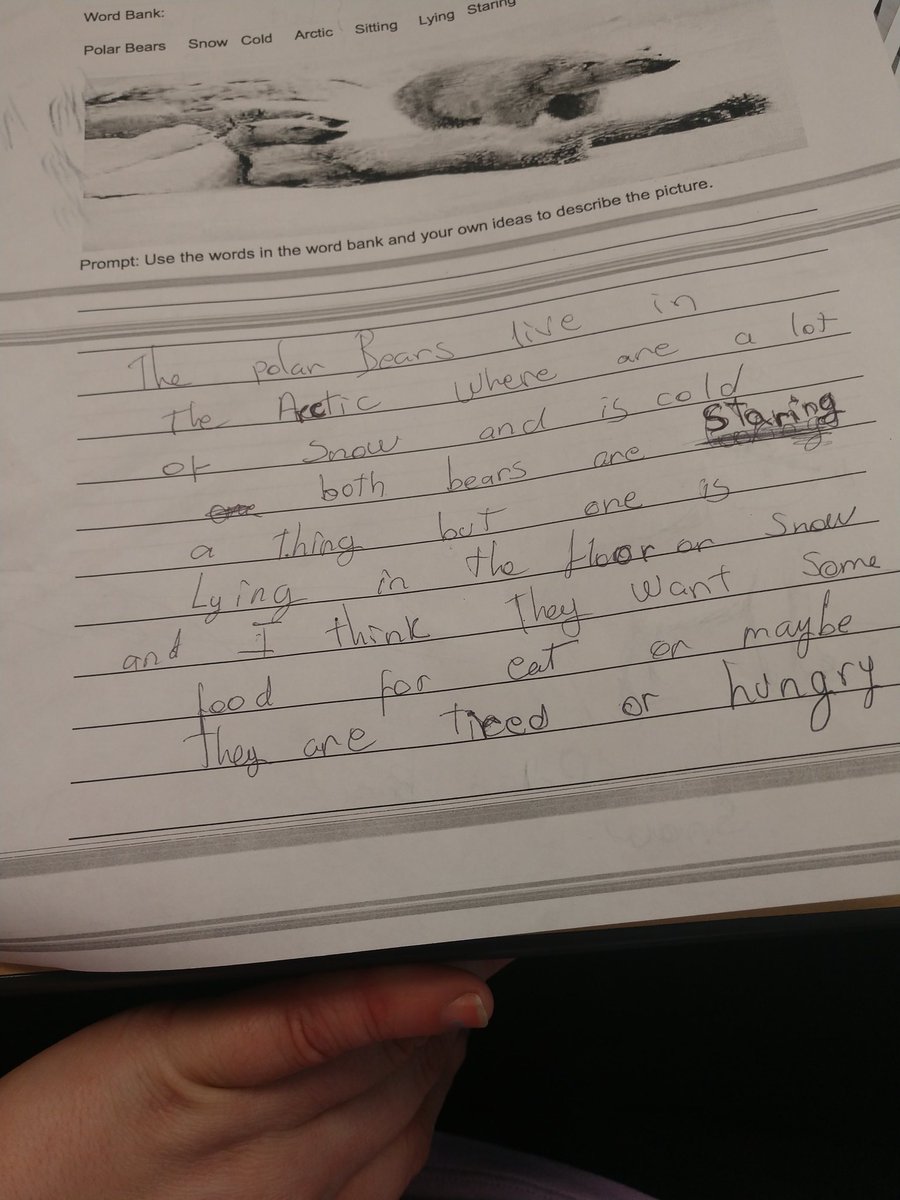 Word Bank:
Polar Bears Snow Cold Arctic Sitting Lying Staring
Prompt: Use the words in the word bank and your own ideas to describe the picture.
The polar Bears live in
the Arctic where are a lot
of Snow and is cold
both bears are Staring
a thing but one is
Lying in the floor or Snow
and I think They want Some
food for eat or maybe
They are tired or hungry